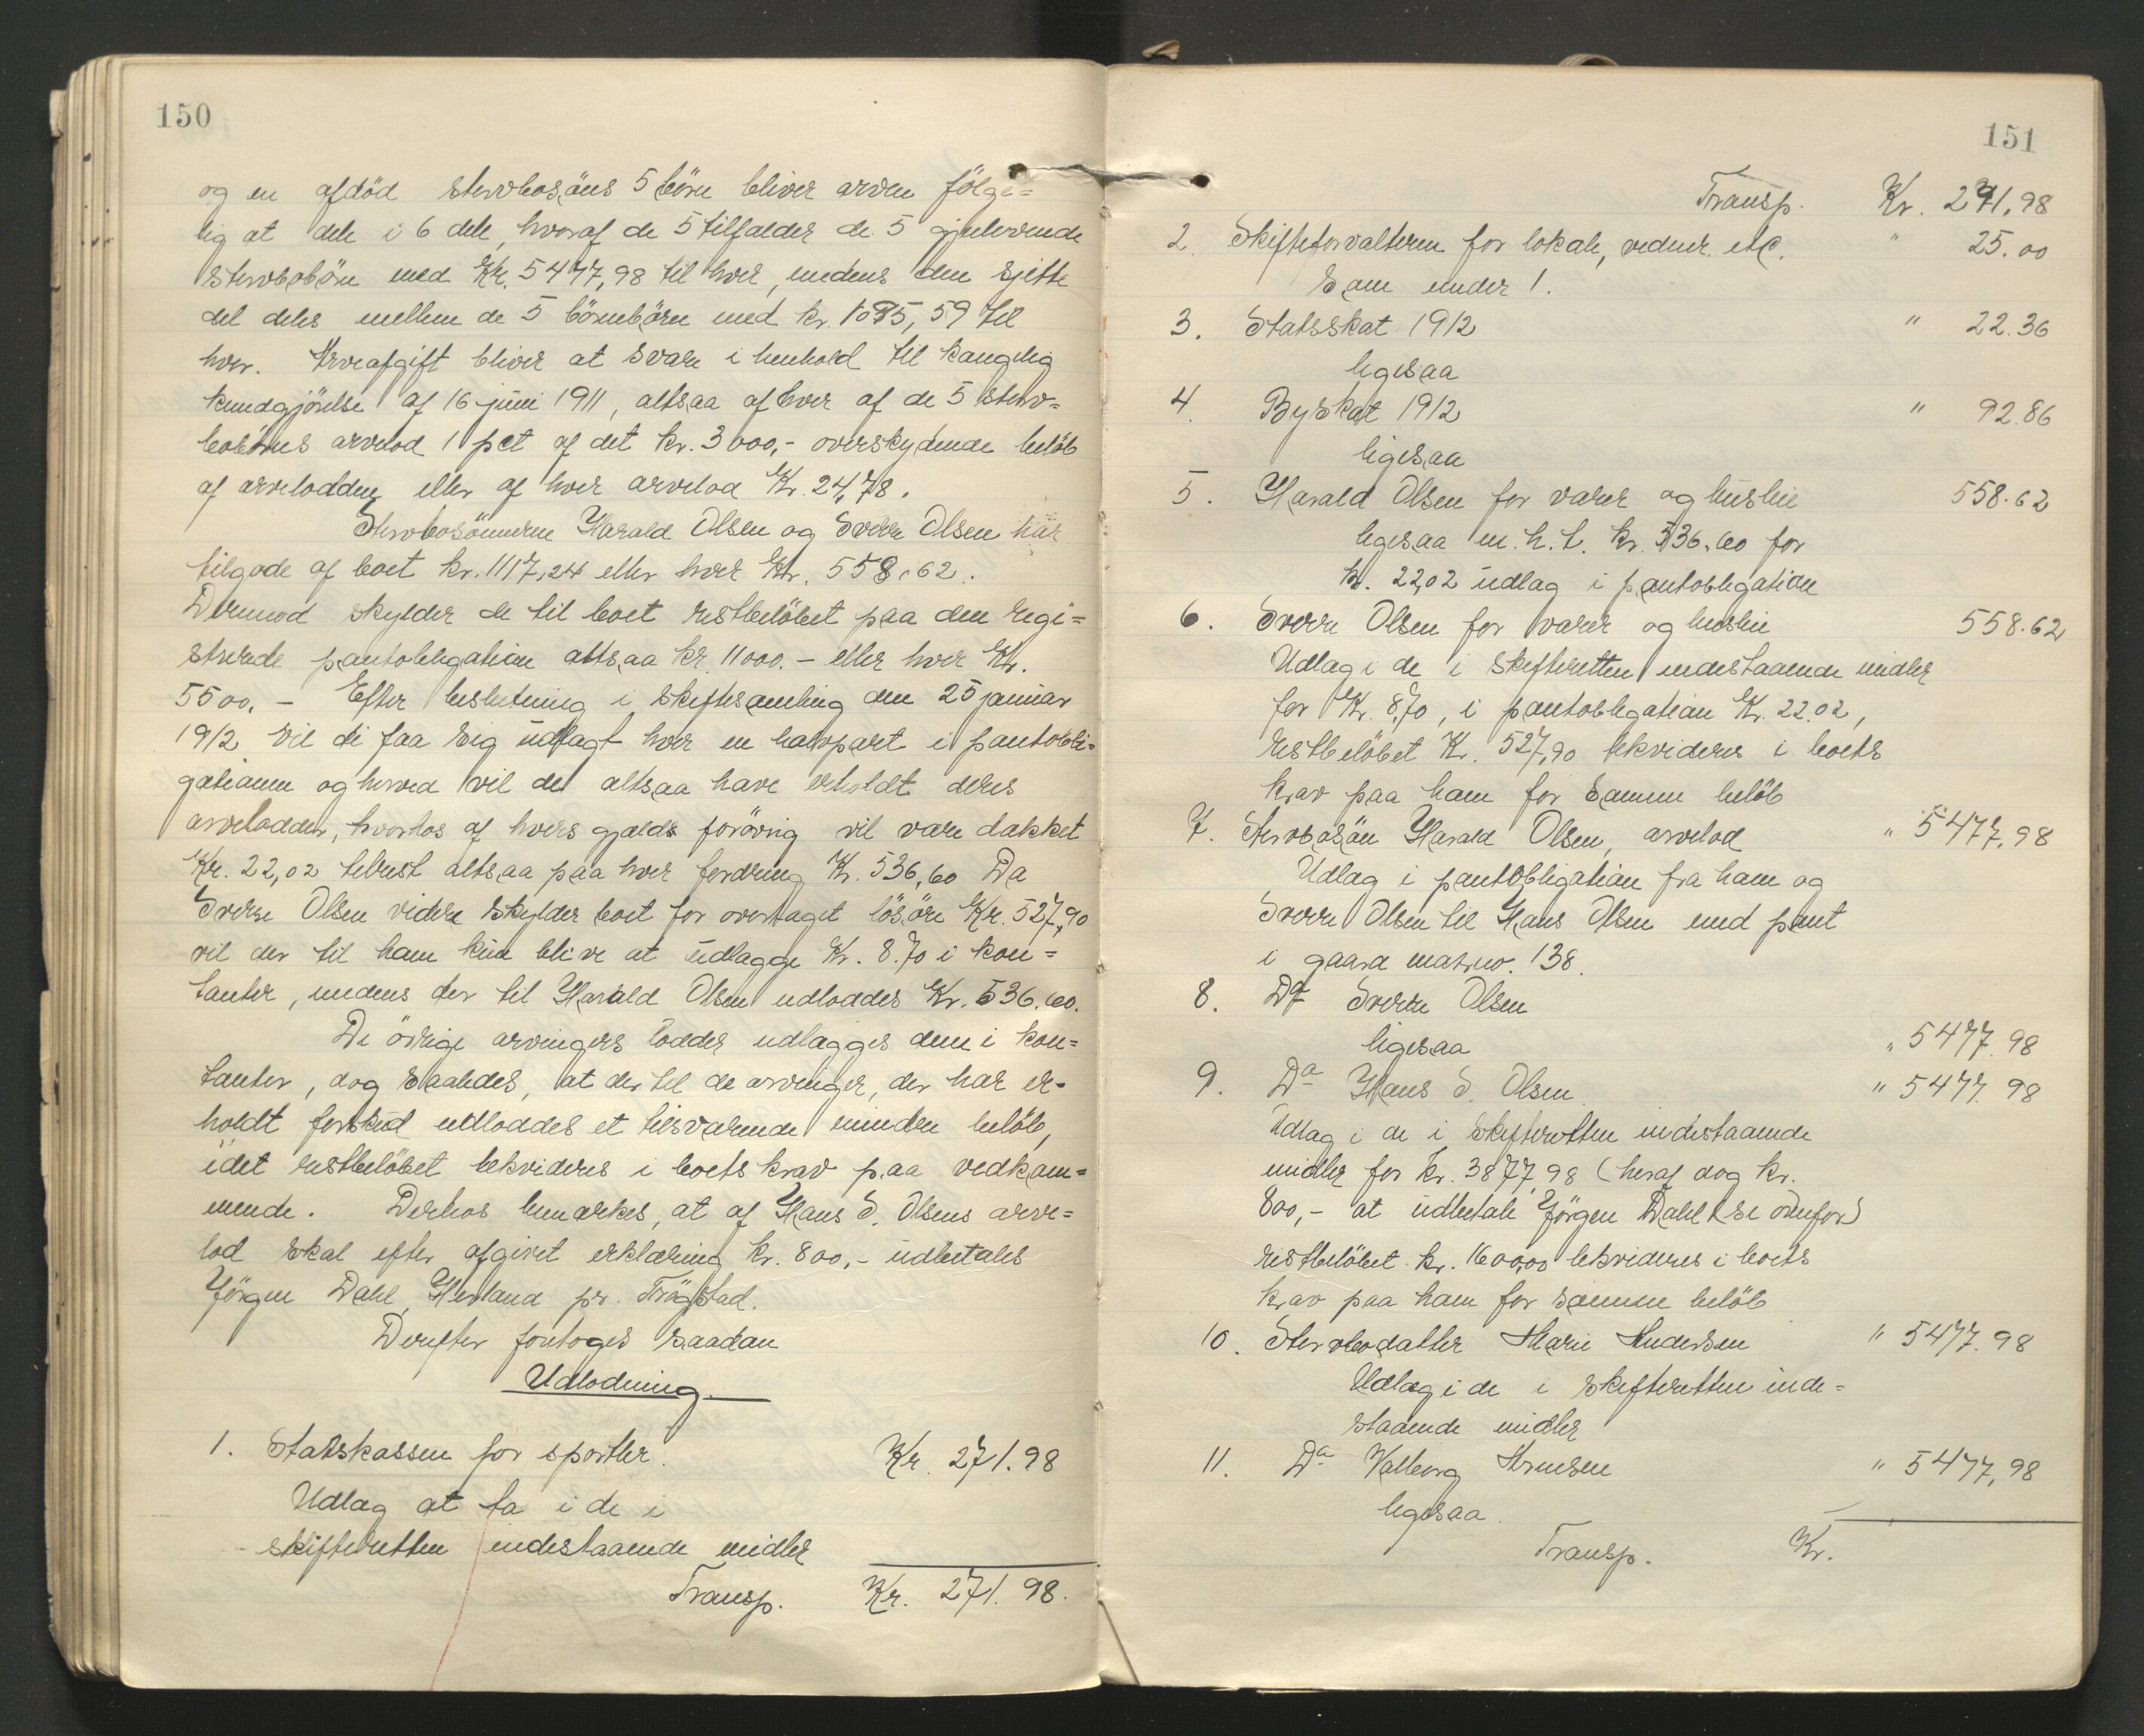 150
og en afdöd stervbosöns 5 börn bliver arven fölge=
lig at dele i 6 dele, hvoraf de 5 tilfalder de 5 gjenlevende
stervbobörn med Kr. 5477,98 til hver, medens den sjette
del deles mellem de 5 börnebörn med kr. 1095,59 til
hver. Arveafgift bliver at svare i henhold til kongelig
kundgjörelse af 16 juni 1911, altsaa af hver af de 5 sterv=
bobörns arvelod 1 pct af det kr. 3000,- overskydende belöb
af arvelodden eller af hver arvelod Kr. 24,78.
Stervbosönnerne Harald Olsen og Sverre Olsen har
tilgode af boet kr. 1117,24 eller hver Kr. 558,62.
Derimod skylder de til boet restbelöbet paa den regi=
strerede pantobligation altsaa kr 11000.- eller hver Kr.
5500.- Efter beslutning i skiftesamling den 25 januar
1912 vil de faa sig udlagt hver en halvpart i pantobli=
gationen og herved vil de altsaa have erholdt deres
arvelodder, hvorhos af hvers gjælds forövrig vil være dækket
Kr. 22,02 tilrest altsaa paa hver fordring Kr. 536,60 Da
Sverre Olsen videre skylder boet for overtaget lösöre Kr. 527,90
vil der til ham kun blive at udlægge Kr. 8.70 i kon=
tanter, medens der til Harald Olsen udloddes Kr. 536.60.
De övrige arvingers lodder udlægges dem i kon=
tanter, dog saaledes, at der til de arvinger, der har er=
holdt forskud udloddes et tilsvarende mindre belöb,
idet restbelöbet likvideres i boets krav paa vedkom=
mende. Derhos bemærkes, at af Hans S. Olsens arve=
lod skal efter afgivet erklæring kr. 800,- udbetales
Jörgen Dahl, Herland pr. Trögstad.
Derefter foretoges saadan
Udlodning.
1. Statskassen for sportler. Kr. 271.98
Udlæg at ta i de i
skifteretten indestaaende midler
Transp. Kr. 271.98.
151
Transp. Kr. 271,98
2. Skifteforvalteren for lokale, vidner etc. " 25.00
Som under 1.
3. Statsskat 1912 " 22.36
ligesaa
4. Byskat 1912 " 92.86
ligesaa
5. Harald Olsen for varer og husleie 558.62
ligesaa m.h.t. kr. 536.60 for
kr. 22,02 udlag i pantobligation
6. Sverre Olsen for varer og husleie 558.62
Udlag i de i skifteretten indestaaende midler
for Kr. 8,70, i pantobligation Kr. 22.02,
restbelöbet Kr. 527,90 likvideres i boets
krav paa ham for samme belöb
7. Stervbosön Harald Olsen, arvelod " 5477,98
Udlag i pantobligation fra ham og
Sverre Olsen til Hans Olsen med pant
i gaard matr.no. 138.
8. Do Sverre Olsen
ligesaa " 5477.98
9. Do Hans S. Olsen " 5477.98
Udlag i de i skifteretten indestaaende
midler for kr. 3877,98 (heraf dog kr.
800,- at udbetale Jörgen Dahl (se ovenfor)
restbelöbet kr. 1600,00 likvideres i boets
krav paa ham for samme belöb
10. Stervbodatter Marie Andersen " 5477.98
Udlæg i de i skifteretten inde=
staaende midler
11. Do Valborg Arnesen " 5477,98
ligesaa.
Transp. Kr.